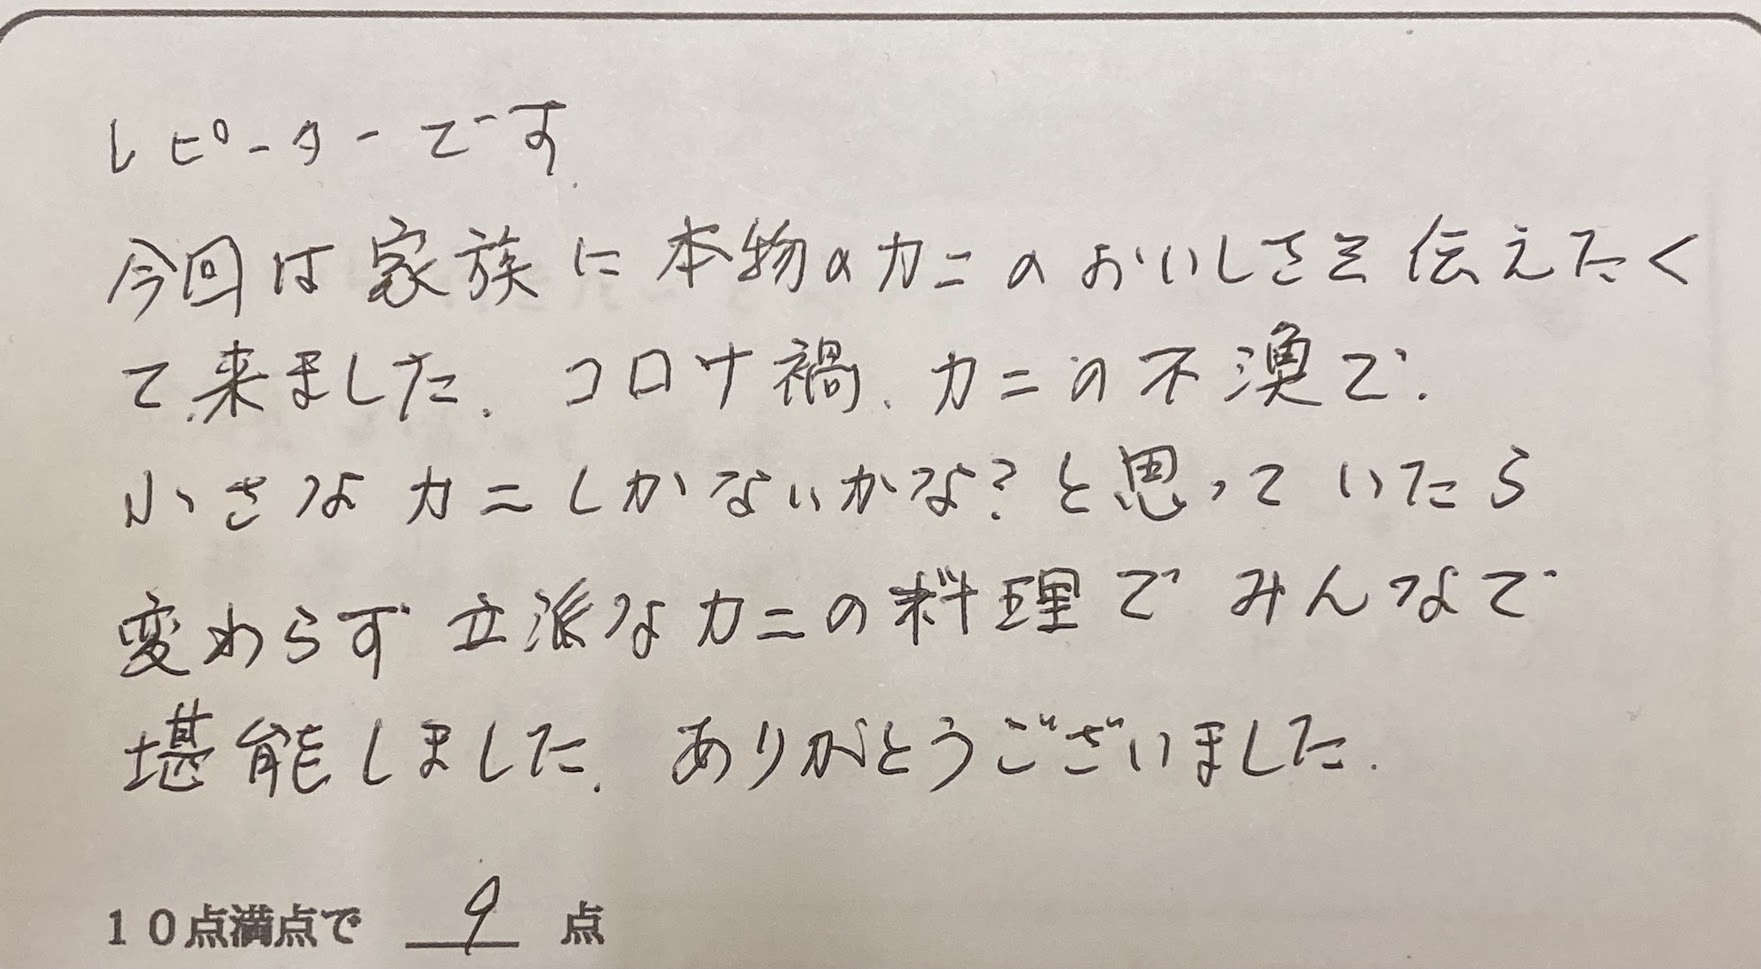 レピーターです.
今回は家族に本物のカニのおいしさを伝えたく
て、来ました. コロナ禍、カニの不漁で、
小さなカニしかないかな?と思っていたら
変わらず立派なカニの料理でみんなで
堪能しました. ありがとうございました.
10点満点で 9 点